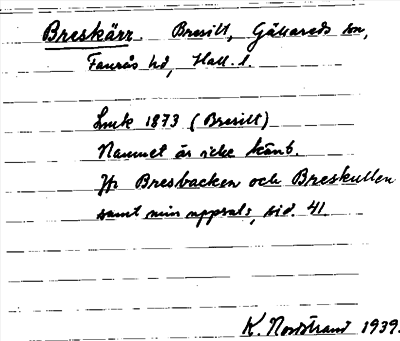 Breskärr. Bresilt, Gällareds sn,
Faurås hd, Hall. l.
Lmk 1873 (Bresilt)
Namnet är icke känt.
Jfr Bresbacken och Breskullen
samt min uppsats, sid. 41.
K. Nordstrand 1939.